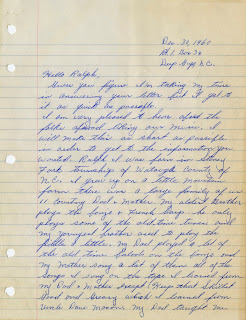 Dec. 31, 1960
Rt. 1. Box 36
Deep Gap N.C.
Hello Ralph,
Guess you figure I'm taking my time
in answering your letter but I get to
it as quick as possible.
I am very pleased to hear about the
folks abroad liking our music. I
will make this as short as possible
in order to get to the information you
wanted. Ralph I was born in Stoney
Fork township of Watauga County of
N.C. I grew up on a little mountain
farm there in a large family of us
11 counting Dad & Mother. My oldest Brother
plays the banjo & French harp and only
plays some of the old time tunes and
my youngest brother used to play the
fiddle a little. My Dad played a lot of
the old time Ballads on the banjo and
my Mother sang a lot of them. All of the
Songs I sung on the tape I learned from
my Dad & Mother except Keep that Skillet
Good and Greasy which I learned from
Uncle Dave Macon. My Dad taught me